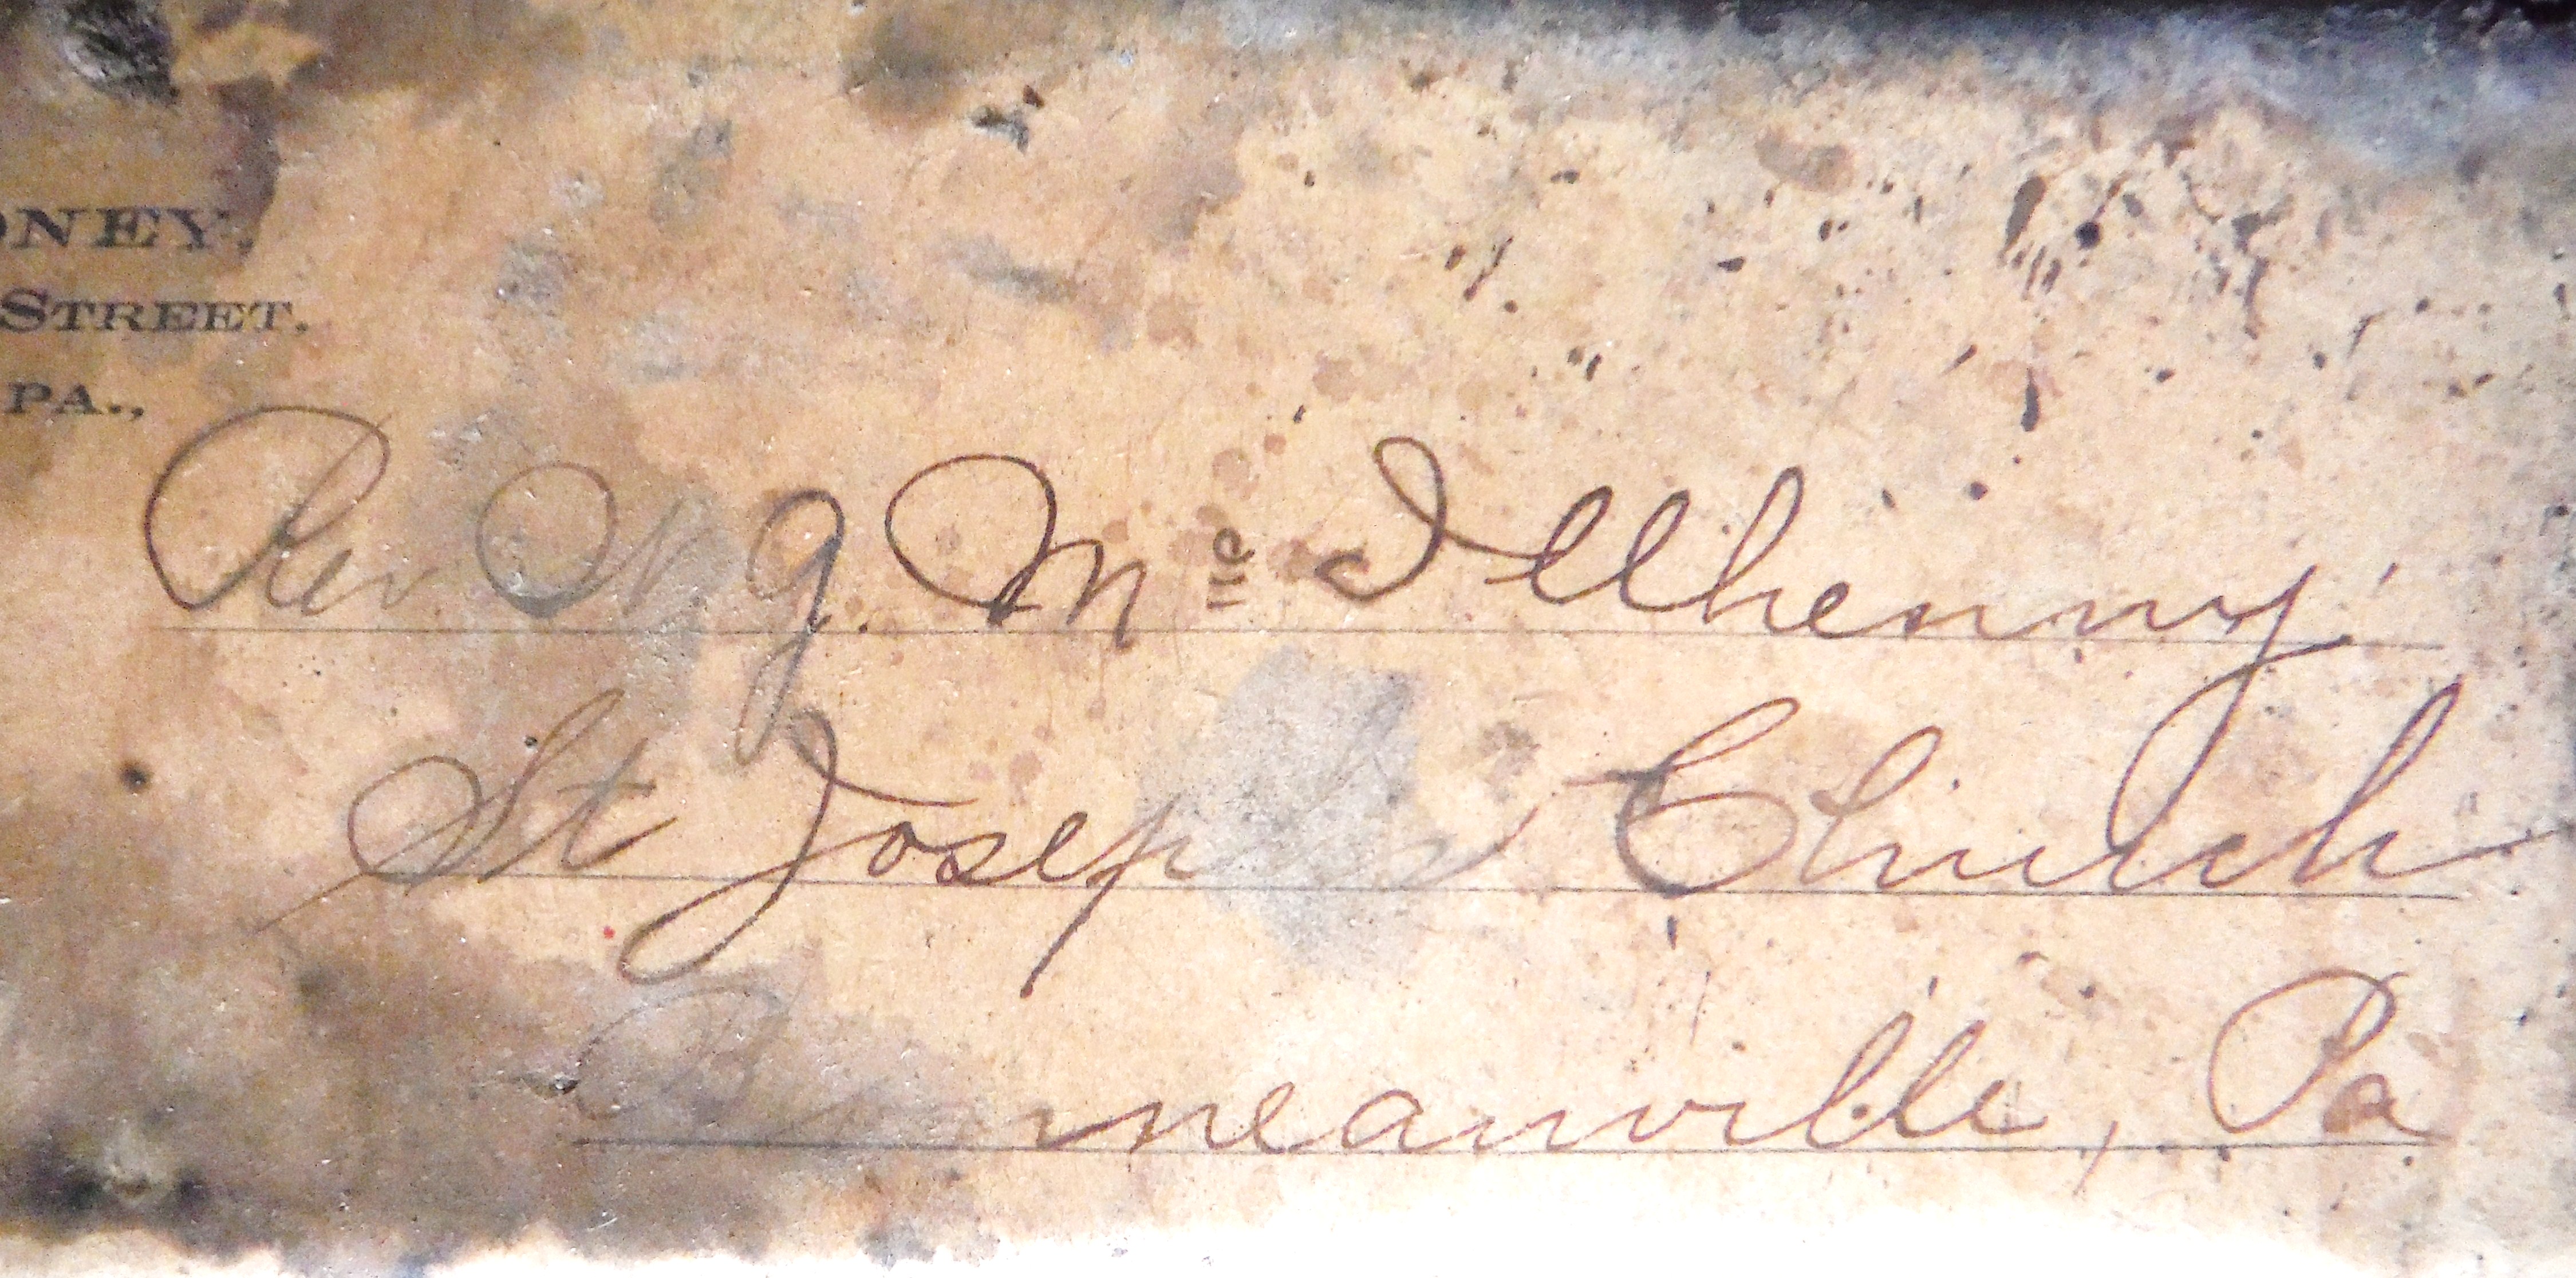 ONEY.
STREET.
PA.,
Rev. N. J. McIllhenny.
St Joseph's Church
Bonneauville, Pa